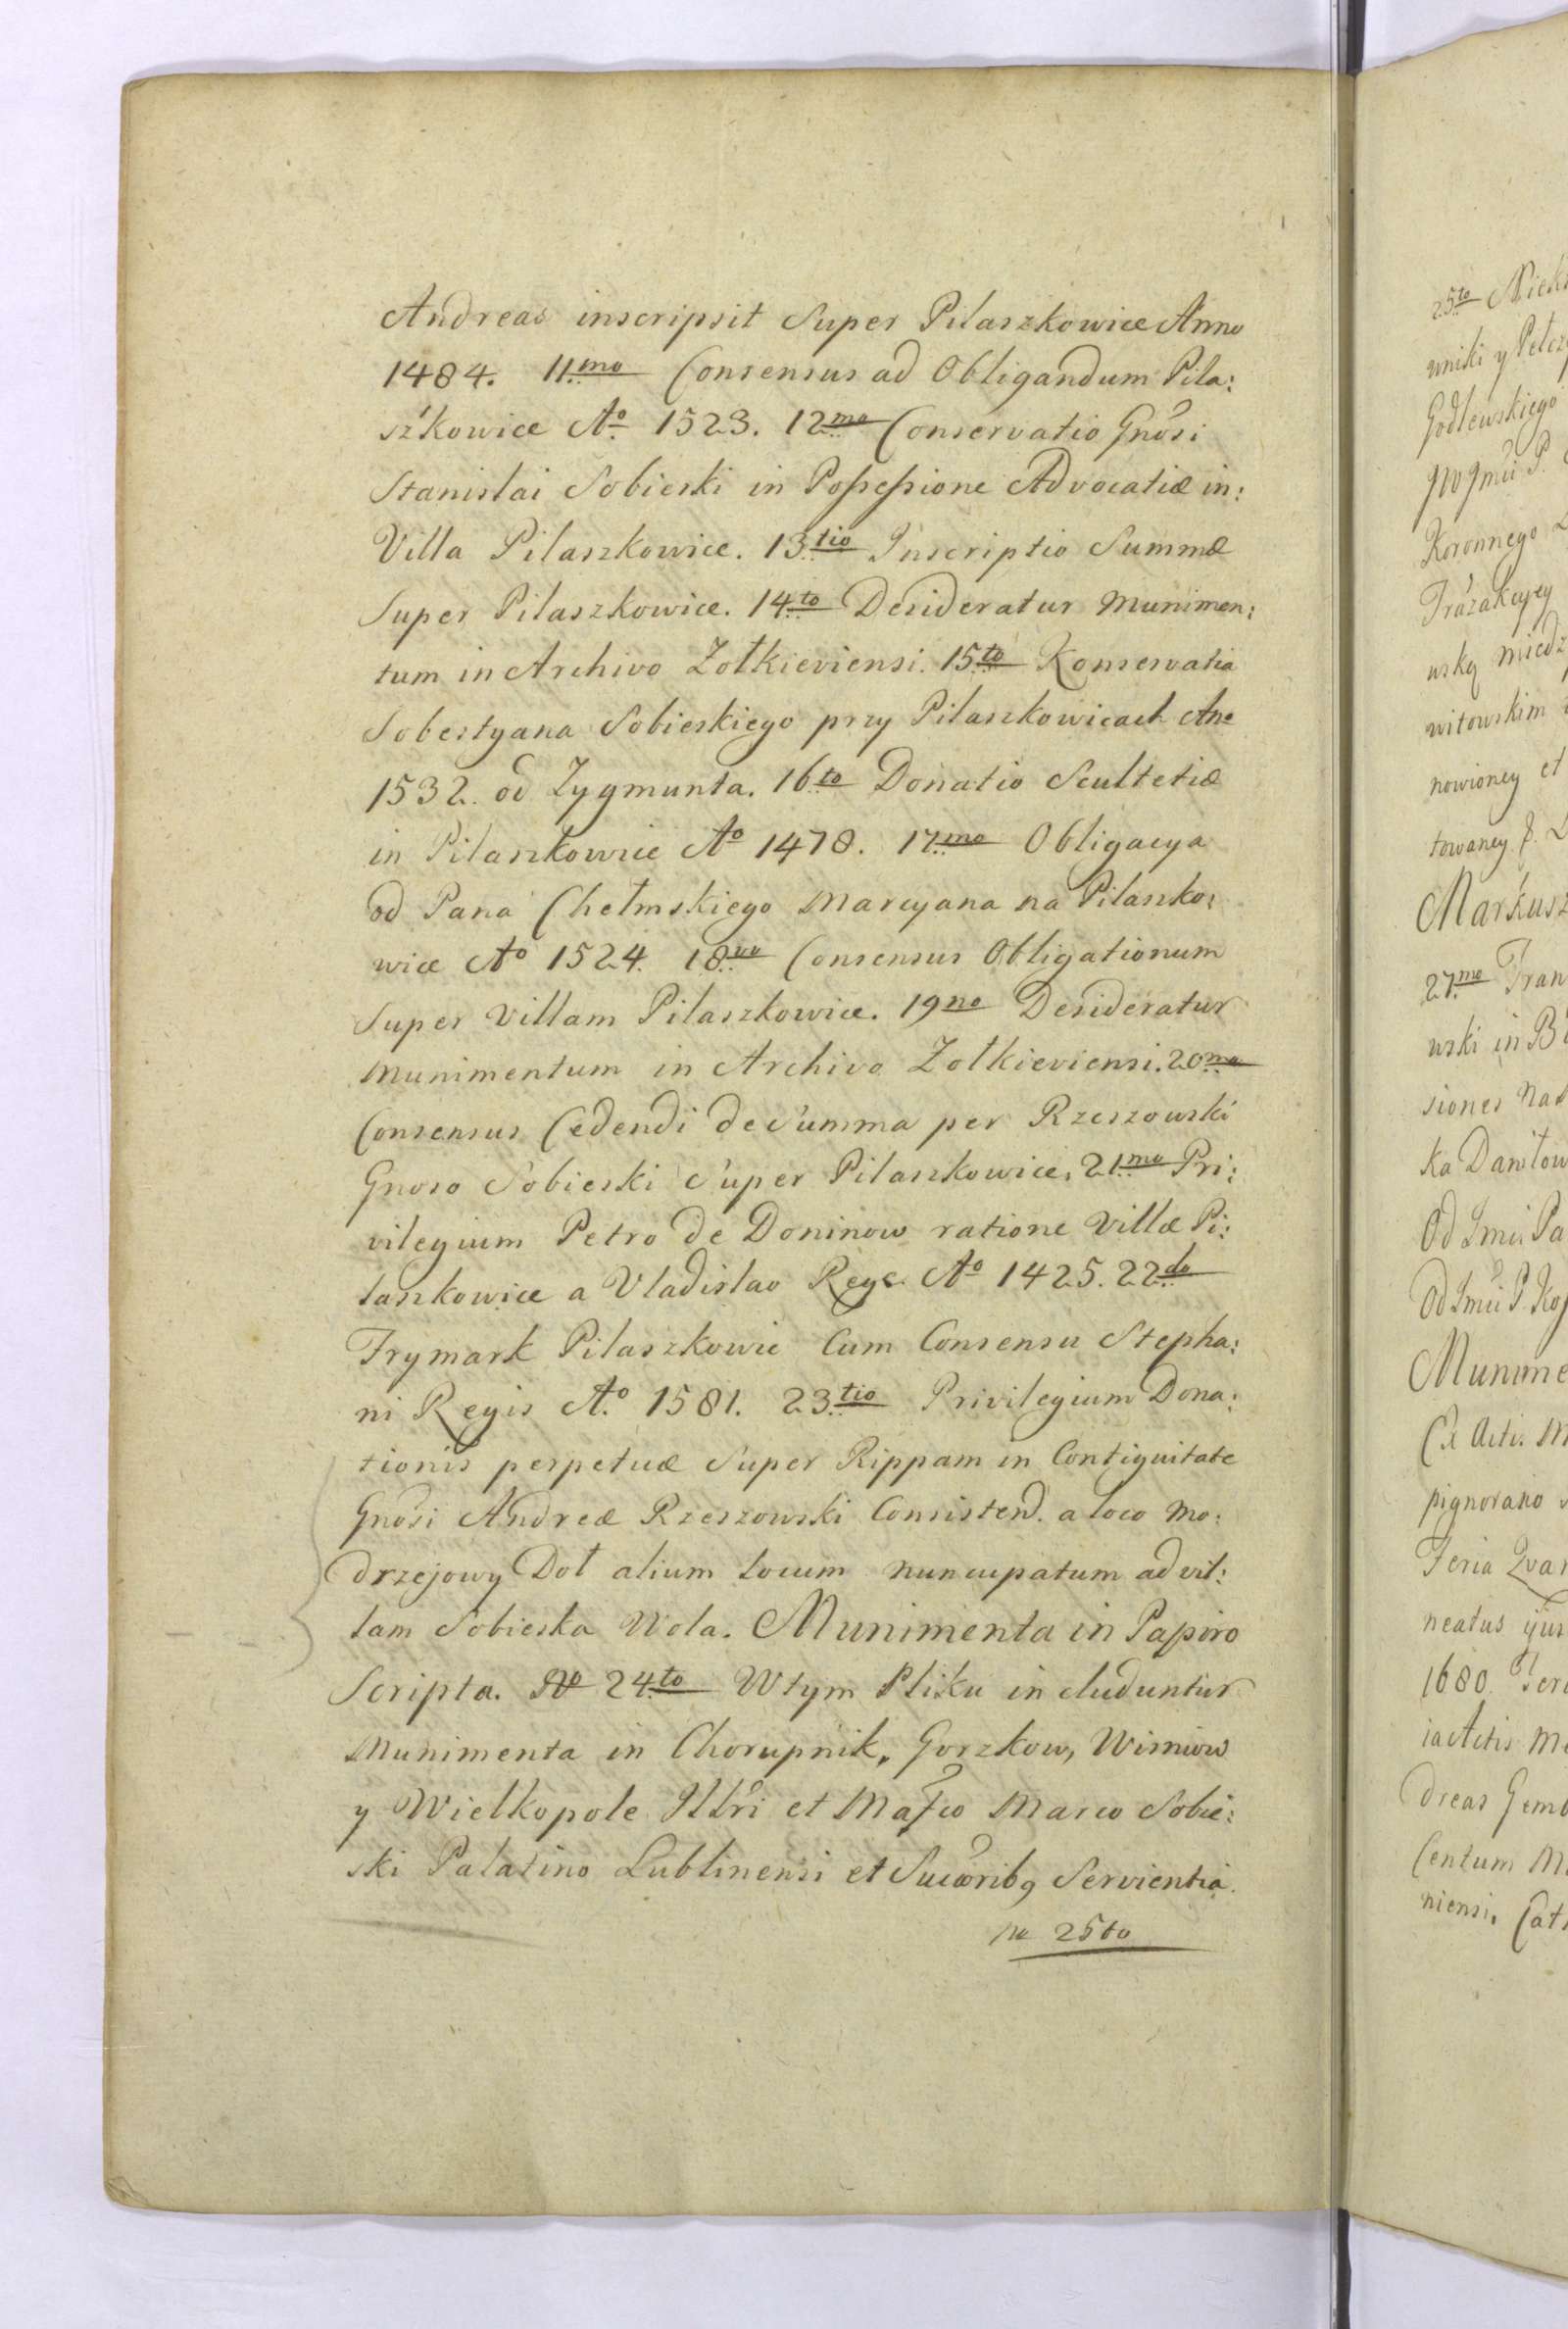 Andreas inscripsit Super Pilaszkowice Anno
1484. 11mo Consensus ad Obligandum Pila:
szkowice Ao 1523. 12mo Conservatio Gnosi
Stanislai Sobieski in Possessione Advocatiæ in:
Villa Pilaszkowice. 13tio Inscriptio Summæ
Super Pilaszkowice. 14to Desideratur Munimen:
tum in Archivo Zołkieviensi. 15to Konservatia
Sobestyana Sobieskiego przy Pilaszkowicach Ano
1532. od Zygmunta. 16to Donatio Scultetiæ
in Pilaszkowice Ao 1478. 17mo Obligacya
od Pana Chełmskiego Marcyana na Pilaszko:
wice Ao 1524. 18vo Consensus Obligationum
Super Villam Pilaszkowice. 19no Desideratur
Munimentum in Archivo Zołkieviensi. 20mo
Consensus Cedendi de Summa per Rzeszowski
Gnoso Sobieski Super Pilaszkowice. 21mo Pri:
vilegium Petro de Doninow ratione Villæ Pi:
laszkowice a Vladislao Rege Ao 1425. 22do
Frymark Pilaszkowic Cum Consensu Stepha:
ni Regis Ao 1581. 23tio Privilegium Dona:
tionis perpetuæ Super Rippam in Contiguitate
Gnosi Andreæ Rzeszowski Consistend. a loco Mo:
drzejowy Doł alium locum nuncupatum ad vil:
lam Sobieska Wola. Munimenta in Papiro
Scripta. No 24to W tym Pliku in cluduntur
Munimenta in Chorupnik, Gorzkow, Wisniow
y Wielkopole Illri et Mafco Marco Sobie:
ski Palatino Lublinensi et Sucoribq Servientia.
No 25to
25to
wniki y
Godlewskiego
Koronnego
wską miedz
witowskim
nowioney et
towaney
Markusz
27mo Tran
wski in
siones Nad
ka Daniłow
Od Jmci Pa
Od Jmci P.
Munime
Ex Acti. M
pignorano
Feria Qvar
neatus
1680.
dreas Gemb
Centum M
niensi.